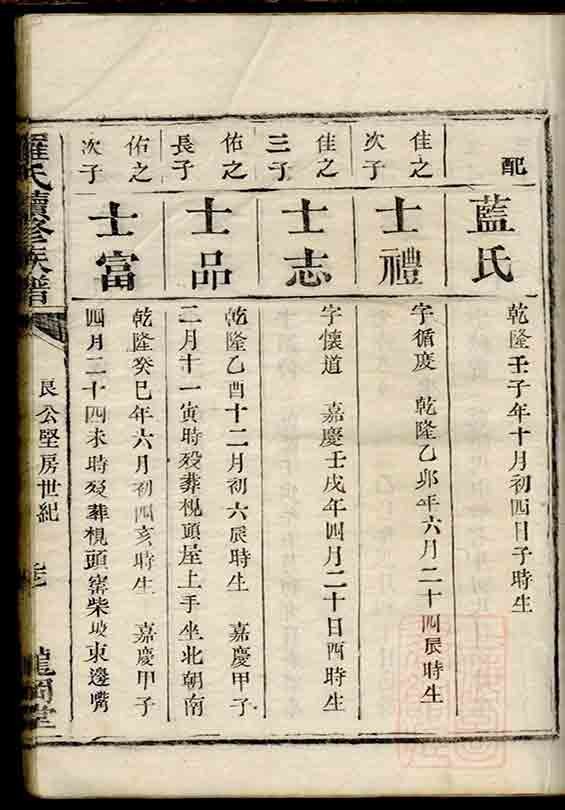 配
藍氏
乾隆壬子年十月初四日子時生
佳之
次子
士禮
字循慶 乾隆乙卯年六月二十四辰時生
佳之
三子
士志
字懷道 嘉慶壬戌年四月二十日酉時生
佑之
長子
士品
乾隆乙酉十二月初六辰時生 嘉慶甲子
二月十一寅時歿葬梘頭屋上手坐北朝南
佑之
次子
士富
乾隆癸巳年六月初四亥時生 嘉慶甲子
四月二十四未時歿葬梘頭窰柴坡東邊嘴
羅氏續修族譜
良公堅房世紀